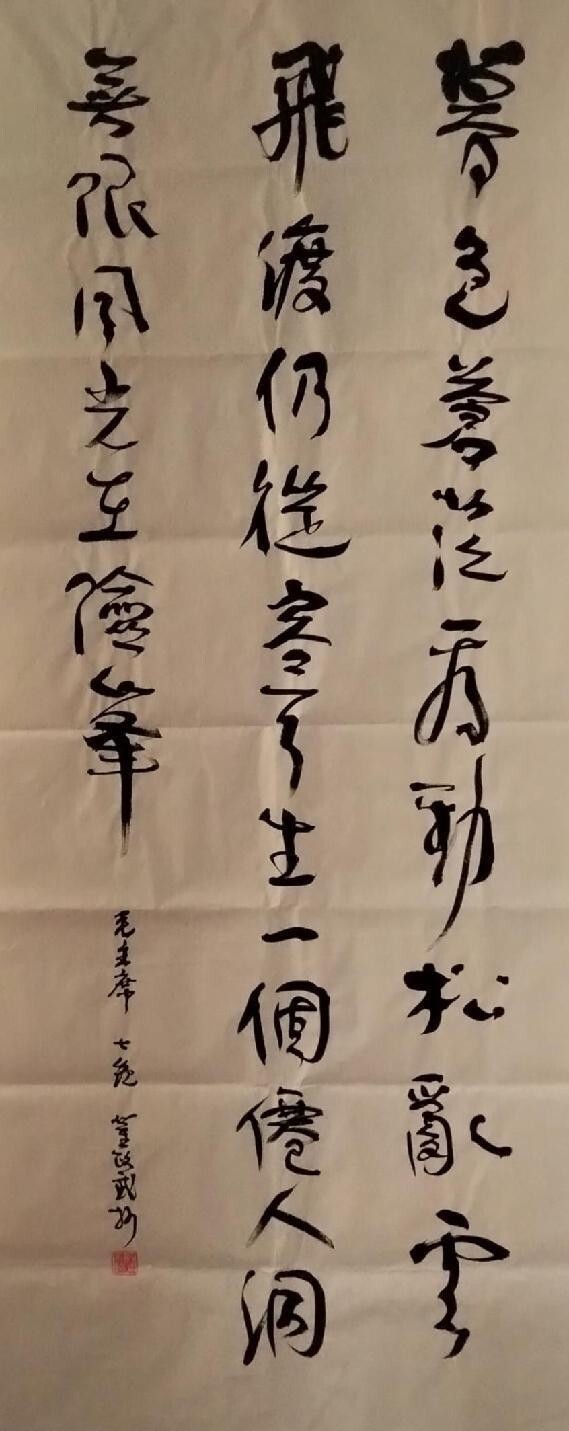 暮色蒼茫看勁松亂雲
飛渡仍從容天生一個僊人洞
無限風光在險峯
毛主席 七絕